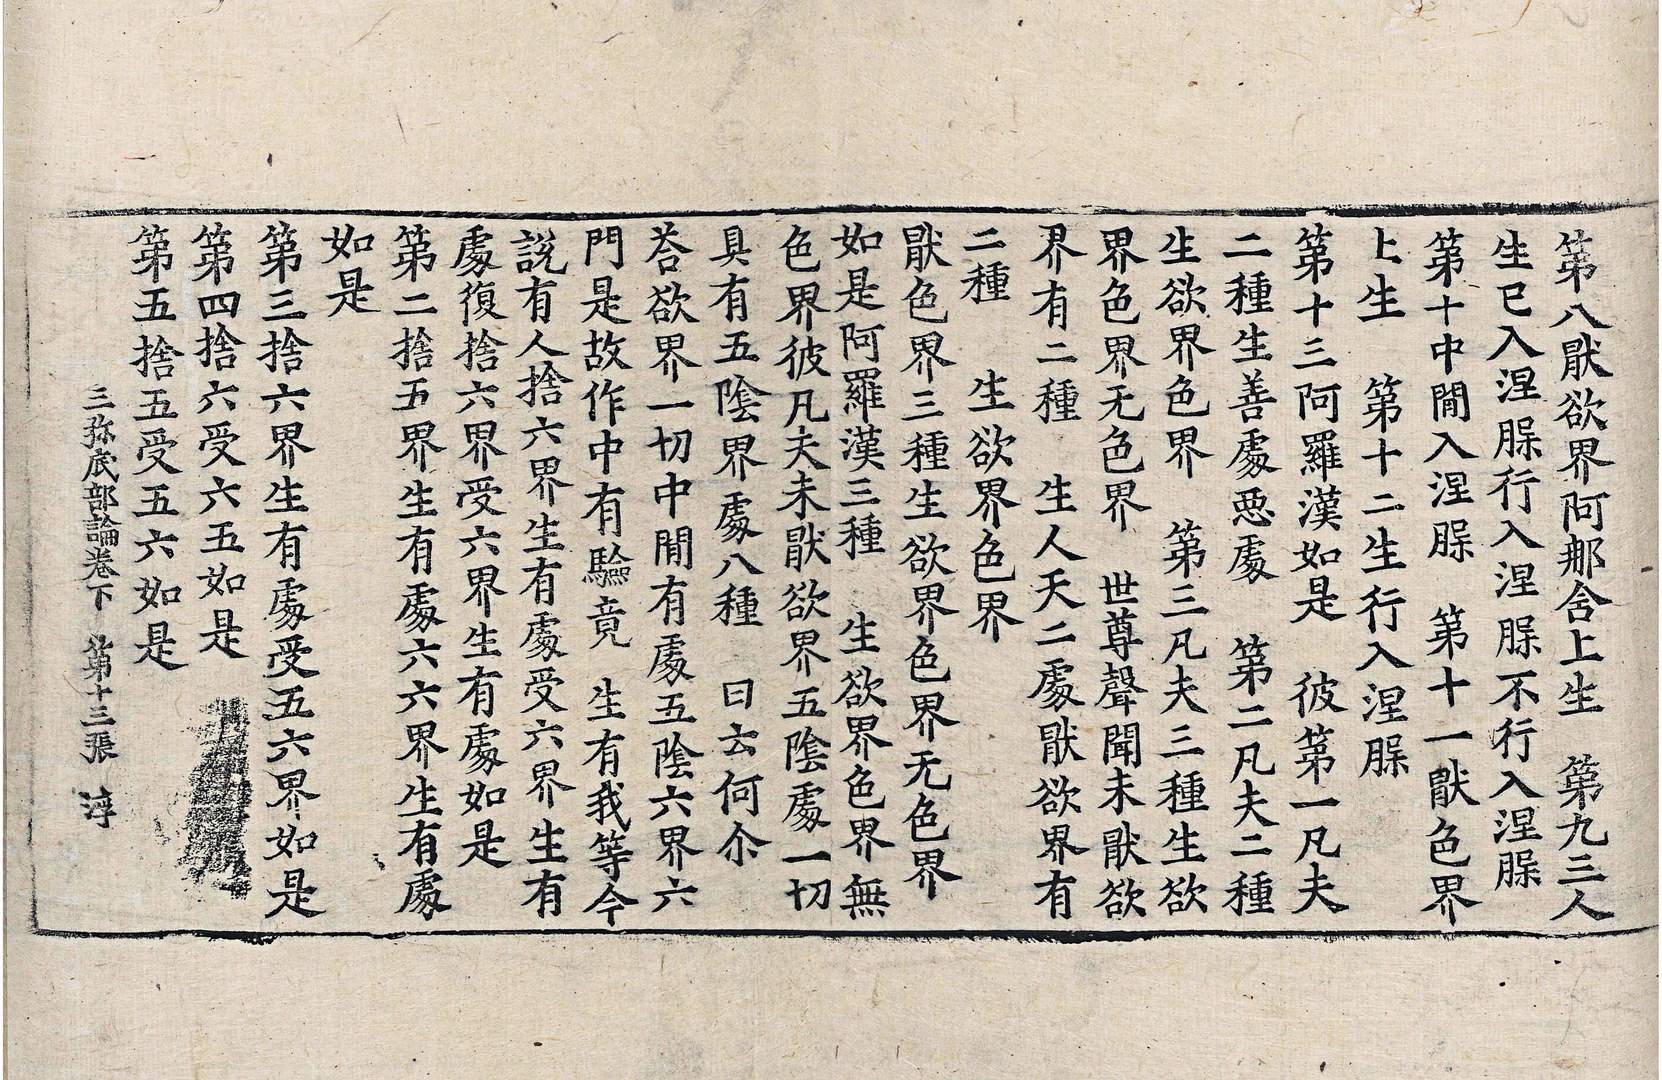 第八猒欲界阿那含上生　第九三人
生已入涅槃行入涅槃不行入涅槃
第十中閒入涅槃　第十一猒色界
上生　第十二生行入涅槃
第十三阿羅漢如是　彼第一凡夫
二種生善處惡處　第二凡夫二種
生欲界色界　第三凡夫三種生欲
界色界无色界　世尊聲聞未猒欲
界有二種　生人天二處猒欲界有
二種　生欲界色界
猒色界三種生欲界色界无色界
如是阿羅漢三種　生欲界色界無
色界彼凡夫未猒欲界五陰處一切
具有五陰界處八種　曰云何尒
荅欲界一切中閒有處五陰六界六
門是故作中有驗竟　生有我等今
說有人捨六界生有處受六界生有
處復捨六界受六界生有處如是
第二捨五界生有處六六界生有處
如是
第三捨六界生有處受五六界如是
第四捨六受六五如是
第五捨五受五六如是
三弥底部論卷下　第十三張　淳